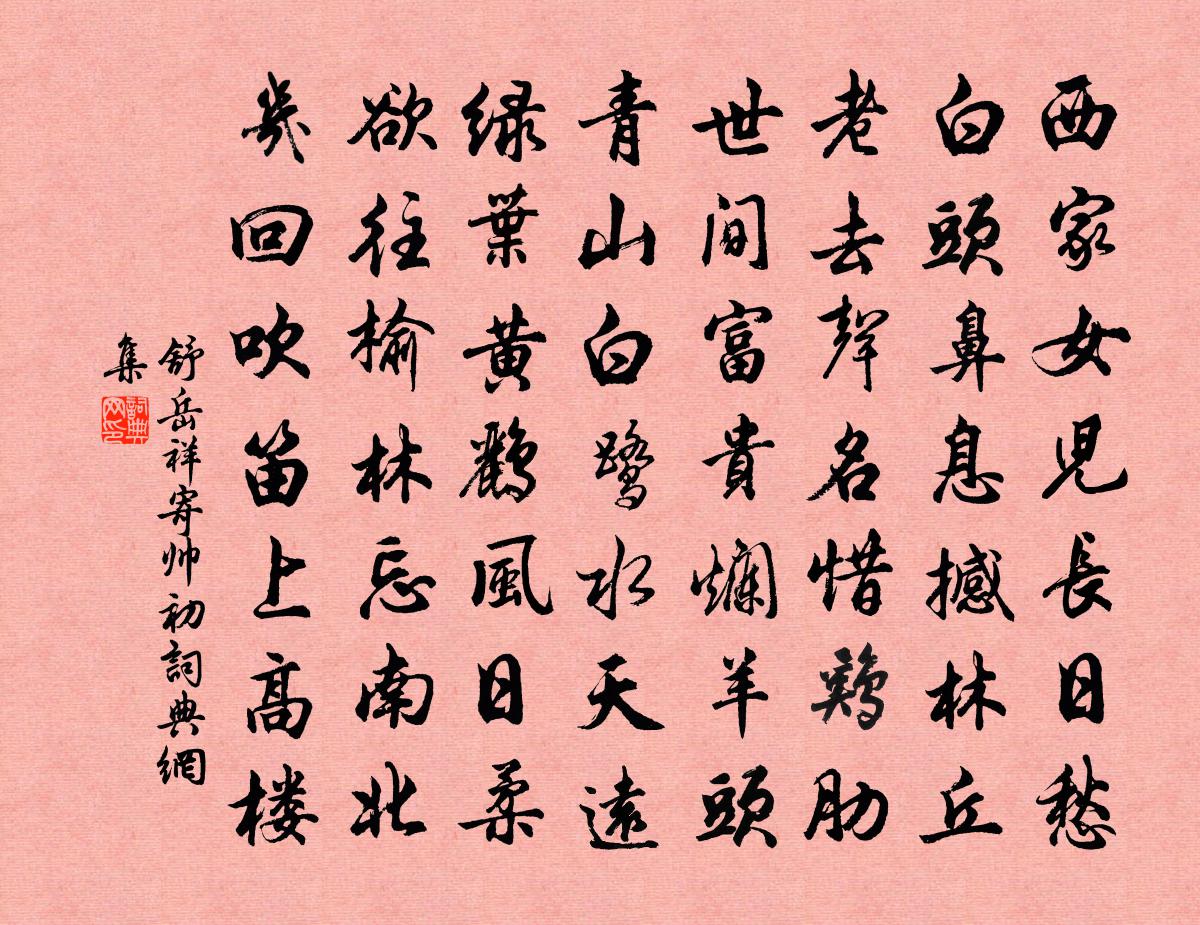 西家女児長日愁
白頭鼻息撼林丘
老去聲名惜鷄肋
世间富貴爛羊頭
青山白鹭水天遠
绿葉黄鸝風日柔
欲往榆林忘南北
幾回吹笛上高楼
舒岳祥寄帅初詞典網
集
詞典网印